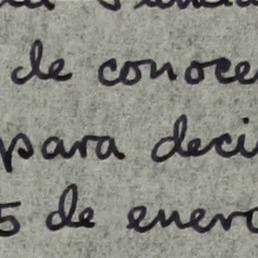 de conoce
para deci
5 de enero